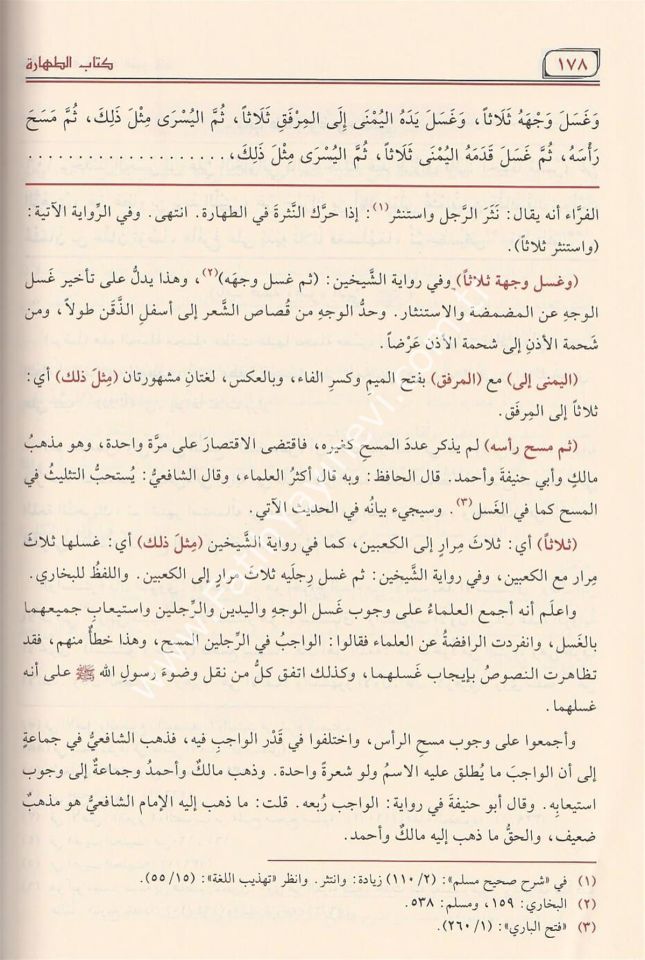 ١٧٨
كتاب الطهارة
وَغَسَلَ وَجْهَهُ ثَلَاثاً، وَغَسَلَ يَدَهُ اليُمْنَى إِلَى المِرْفَقِ ثَلَاثاً، ثُمَّ اليُسْرَى مِثْلَ ذَلِكَ، ثُمَّ مَسَحَ
رَأْسَهُ، ثُمَّ غَسَلَ قَدَمَهُ اليُمْنَى ثَلَاثاً، ثُمَّ اليُسْرَى مِثْلَ ذَلِكَ، . . . . . . . . . . . . . . . . . . .
الفرَّاء أنه يقال: نَثَر الرَّجل واستنثر(١): إذا حرَّك النَّثرةَ في الطهارة. انتهى. وفي الرِّواية الآتية:
(واستنثر ثلاثاً).
(وغسل وجهة ثلاثاً) وفي رواية الشَّيخين: (ثم غسل وجهَه)(٢)، وهذا يدلُّ على تأخير غَسل
الوجهِ عن المضمضة والاستنثار. وحدُّ الوجهِ من قُصاص الشَّعر إلى أسفلِ الذَّقَن طولاً، ومن
شَحمة الأذنِ إلى شحمة الأذن عَرْضاً.
(اليمنى إلى) مع (المرفق) بفتح الميمِ وكسرِ الفاء، وبالعكس، لغتانِ مشهورتان (مِثلَ ذلك) أي:
ثلاثاً إلى المِرفَق.
(ثم مسح رأسه) لم يذكر عددَ المسحِ كغيره، فاقتضى الاقتصارَ على مرَّة واحدة، وهو مذهبُ
مالكٍ وأبي حنيفةَ وأحمد. قال الحافظ: وبه قال أكثرُ العلماء، وقال الشافعيُّ: يُستحبُّ التثليثُ في
المسح كما في الغَسل(٣). وسيجيء بيانُه في الحديث الآتي.
(ثلاثاً) أي: ثلاثَ مِرارٍ إلى الكعبين، كما في رواية الشَّيخين (مِثلَ ذلك) أي: غسلها ثلاثَ
مِرار مع الكعبين، وفي رواية الشَّيخين: ثم غسل رِجلَيه ثلاثَ مرارٍ إلى الكعبين. واللفظُ للبخاري.
واعلَم أنه أجمع العلماءُ على وجوب غَسل الوجهِ واليدين والرِّجلين واستيعابِ جميعهما
بالغَسل، وانفردت الرافضةُ عن العلماء فقالوا: الواجبُ في الرِّجلين المسح، وهذا خطأٌ منهم، فقد
تظاهرت النصوصُ بإيجاب غَسلهما، وكذلك اتفق كلُّ من نقل وضوءَ رسولِ الله ﷺ على أنه
غسلهما.
وأجمعوا على وجوب مسحِ الرأس، واختلفوا في قَدْر الواجبِ فيه، فذهب الشافعيُّ في جماعةٍ
إلى أن الواجبَ ما يُطلق عليه الاسمُ ولو شعرةً واحدة. وذهب مالكٌ وأحمدُ وجماعةٌ إلى وجوب
استيعابِه. وقال أبو حنيفةَ في رواية: الواجب رُبعه. قلت: ما ذهب إليه الإمام الشافعيُّ هو مذهبٌ
ضعيف، والحقُّ ما ذهب إليه مالكٌ وأحمد.
(١) في «شرح صحيح مسلم»: (٢/ ١١٠) زيادة: وانتثر. وانظر «تهذيب اللغة»: (١٥/ ٥٥).
(٢) البخاري: ١٥٩، ومسلم: ٥٣٨.
(٣) «فتح الباري»: (١/ ٢٦٠).